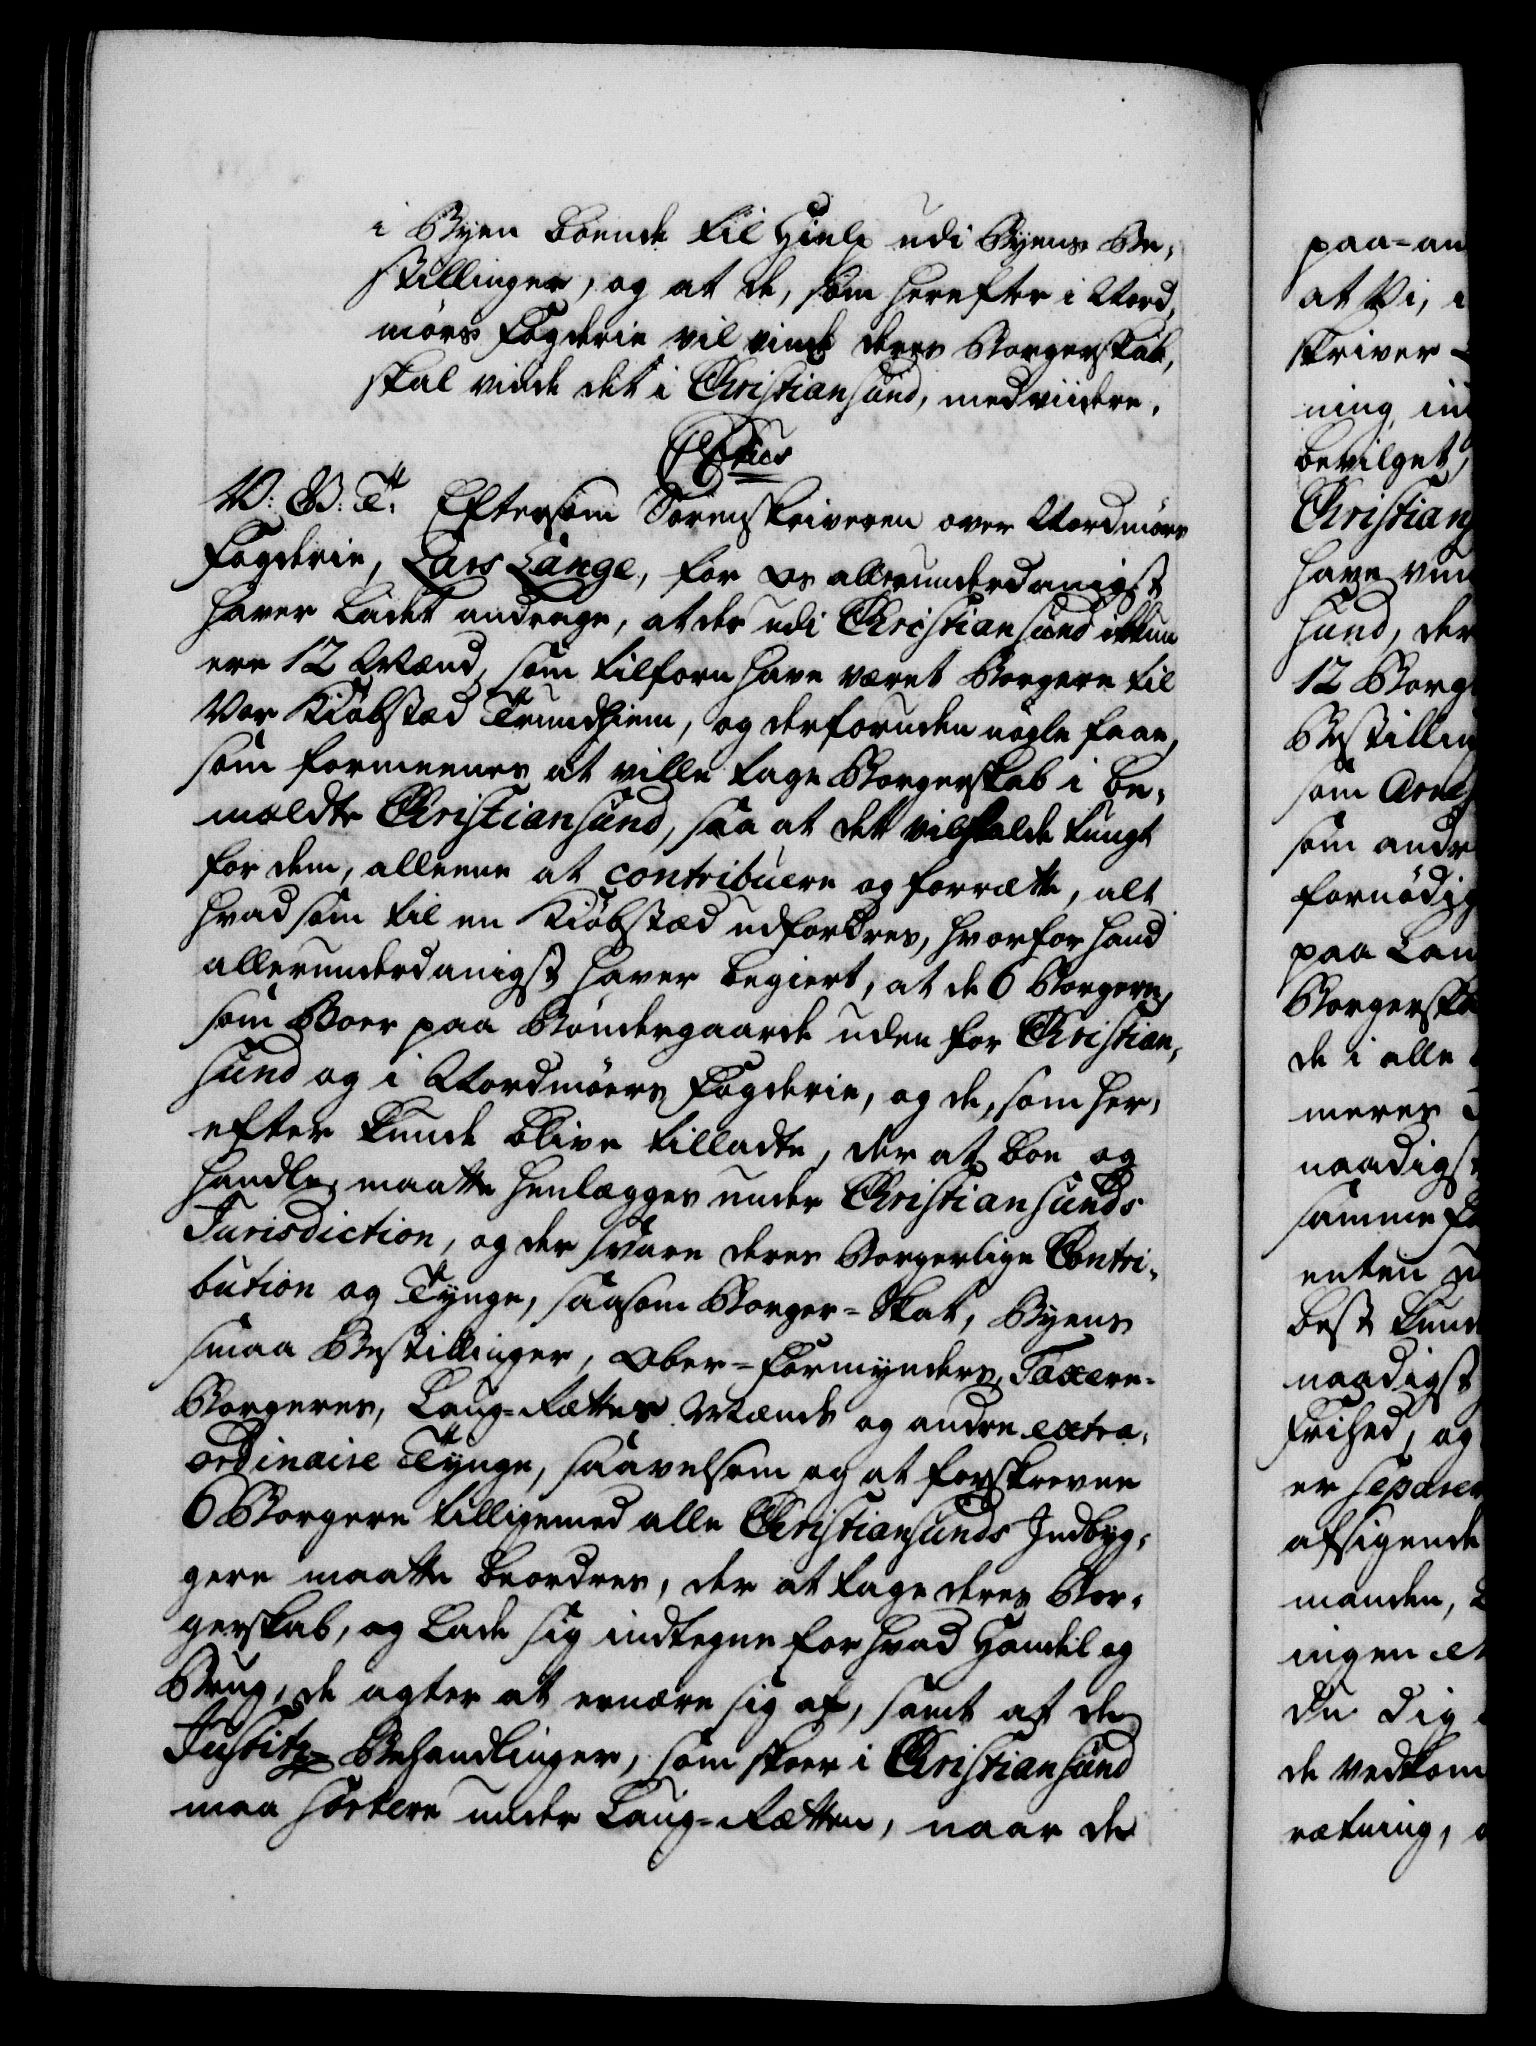 i Byen boende til Hielp udi Byens Be-
stillinger, og at de, som herefter i Nord-
møers Fogderie vil vinde deres Borgerskab,
skal vinde det i Christiansund, med viidere.
V: G: T: Eftersom Sorenskriveren over Nordmøers
Fogderie, Lars Lange, for Os allerunderdanigst
haver ladet andrage, at der udi Christiansund ikkun
ere 12 Mænd, som tilforn have været Borgere til
Vor Kiøbstæd Trundhiem, og derforuden nogle faae,
som formeenes at ville tage Borgerskab i be-
mældte Christiansund, saa at det vil falde tungt
for dem, alleene at contribuere og forrætte, alt
hvad som til en Kiøbstæd udfordres, hvorfor hand
allerunderdanigst haver begiert, at de 6 Borgere,
som Boer paa Bøndergaarde uden for Christian-
sund og i Nordmøers Fogderie, og de, som her-
efter kunde blive tilladte, der at boe og
handle, maatte henlægges under Christiansunds
Jurisdiction, og der svare deres Borgerlige Contri-
bution og Tynge, saasom Borger-Skat, Byens
smaa Bestillinger, Ober-Formynders, Taxere-
Borgeres, Laug-Rættes Mænds og andre extra-
ordinaire Tynge, saavelsom og at forskrevne
6 Borgere tilligemed alle Christiansunds Indbyg-
gere maatte beordres, der at tage deres Bor-
gerskab, og lade sig indtegne for hvad Handel og
Brug, de agter at ernære sig af, samt at de
Justitz-Behandlinger, som skeer i Christiansund
maa sortere under Laug-Rætten, naar de
paa-an
at Vi,
skriver
ning in
bevilget,
Christian
have vun
sund, der
12 Borg
Bestilling
som
som andr
fornødig
paa Lan
Borgerska
de i alle
meres
naadigst
samme
enten
best kund
naadigst
Frihed, og
er separer
afsigende
manden,
ingen
du dig
de vedkom
rætning,